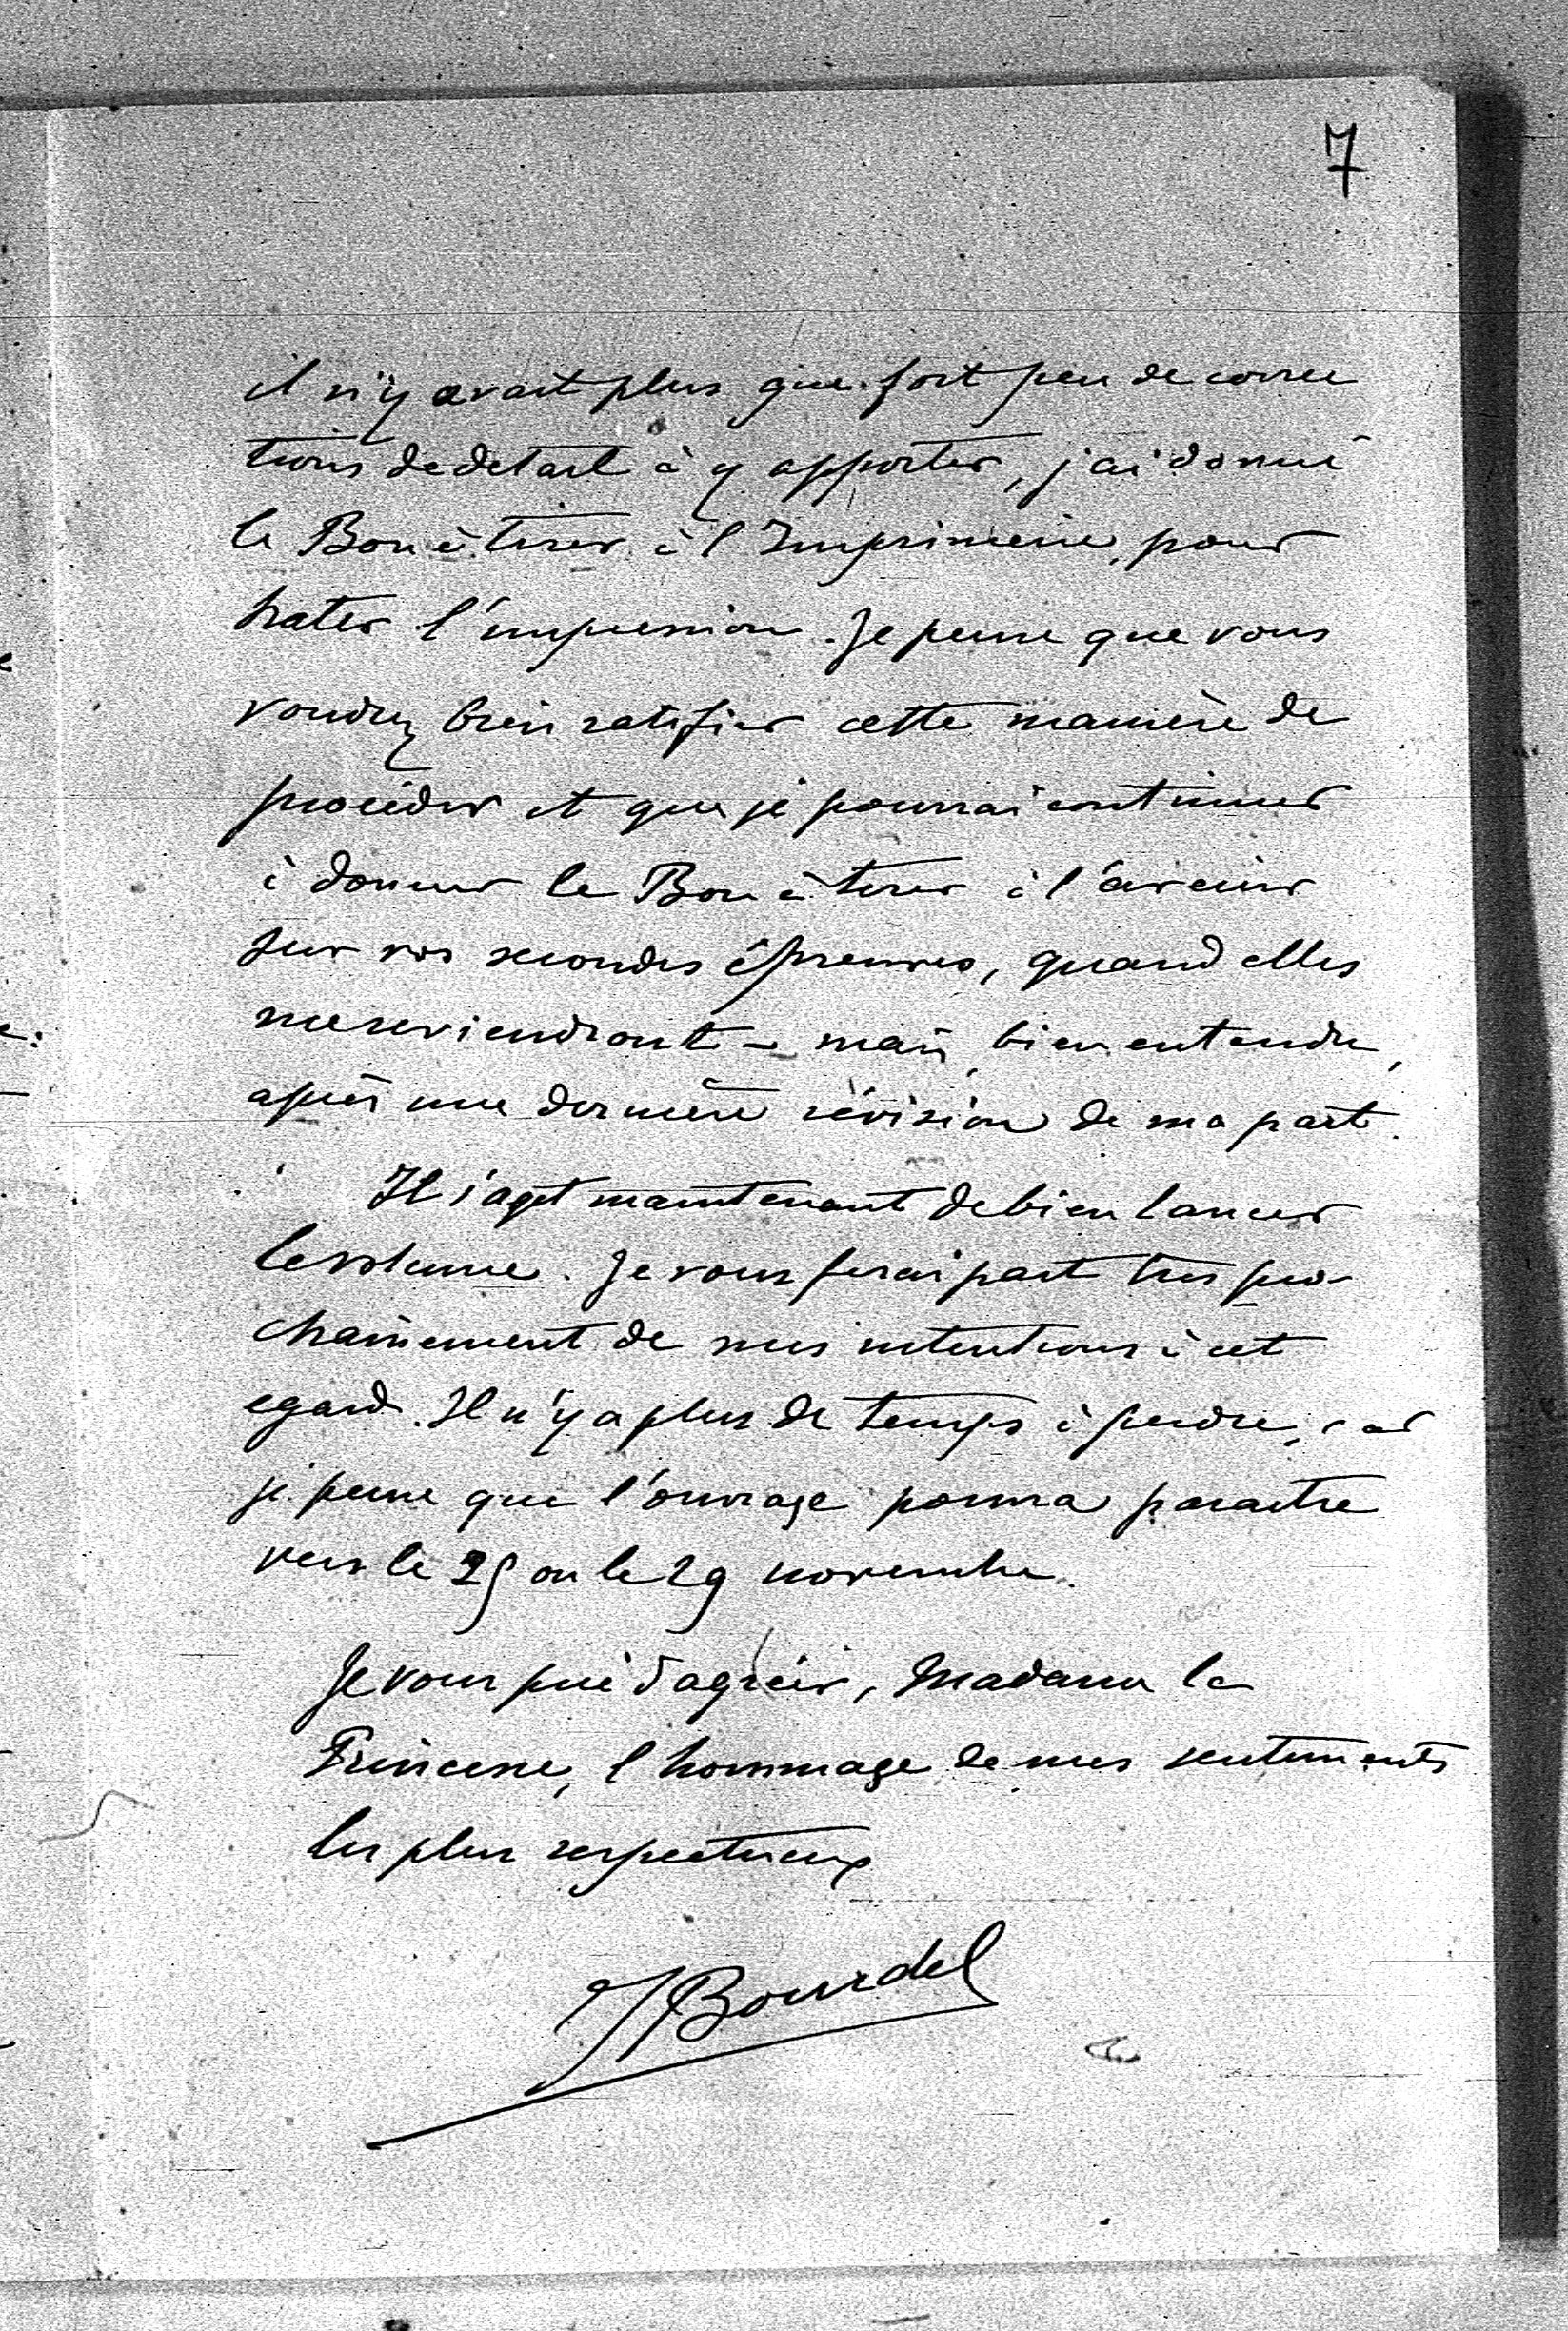 7
il n'y avait plus que fort peu de correc
tions de detail à y apporter, j'ai donné
le Bon à tirer à l'Imprimerie, pour
hater l'impression. Je pense que vous
voudrez bien ratifier cette manière de
procéder et que je pourrai continuer
à donner le Bon à tirer à l'avenir
sur vos secondes épreuves, quand elles
me reviendront – mais, bien entendu,
après une dernière révision de ma part.
Il s'agit maintenant de bien lancer
le volume. Je vous ferai part tres pro-
chainement de mes intentions à cet
egard. Il n'y a plus de temps à perdre, car
je pense que l'ouvrage pourra paraitre
vers le 25 ou le 29 novembre.
Je vous prie d'agréer, Madame la
Princesse, l'hommage de mes sentiments
les plus respectueux
J Bourdel